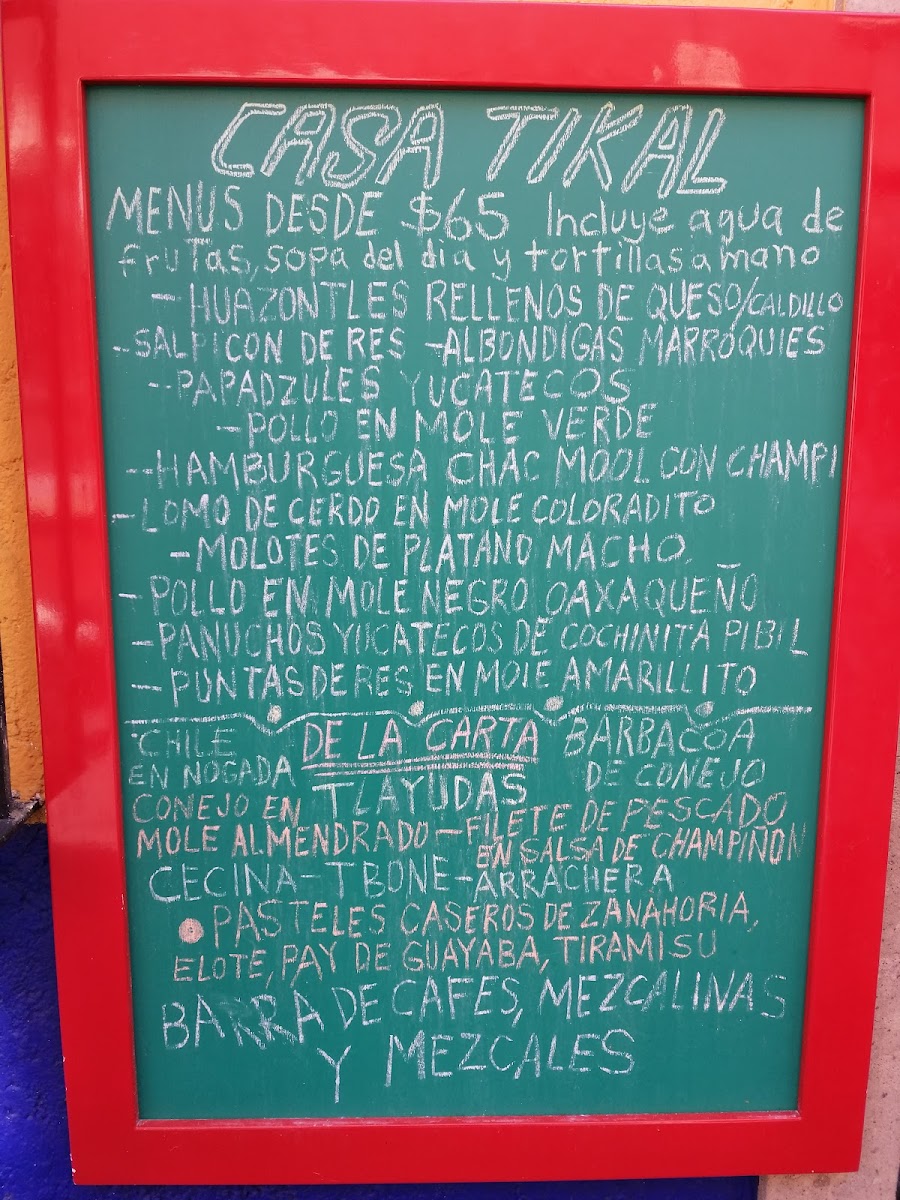 CASA TIKAL
MENUS DESDE $65 Incluye agua de
frutas, sopa del dia y tortillas a mano
- HUAZONTLES RELLENOS DE QUESO/CALDILLO
-SALPICON DE RES -ALBONDIGAS MARROQUIES
-PAPADZULES YUCATECOS
-POLLO EN MOLE VERDE
-HAMBURGUESA CHAC MOOL CON CHAMPI
-LOMO DE CERDO EN MOLE COLORADITO
-MOLOTES DE PLATANO MACHO.
- POLLO EN MOLE NEGRO OAXAQUEÑO
-PANUCHOS YUCATECOS DE COCHINITA PIBIL
- PUNTAS DE RES EN MOLE AMARILLITO
CHILE
EN NOGADA
DE LA CARTA
BARBACOA
DE CONEJO
TLAYUDAS
CONEJO EN
MOLE ALMENDRADO-
FILETE DE PESCADO
EN SALSA DE CHAMPIÑON
CECINA-TBONE-ARRACHERA
PASTELES CASEROS DE ZANAHORIA,
ELOTE, PAY DE GUAYABA, TIRAMISU
BARRA DE CAFES, MEZCALINAS
Y MEZCALES